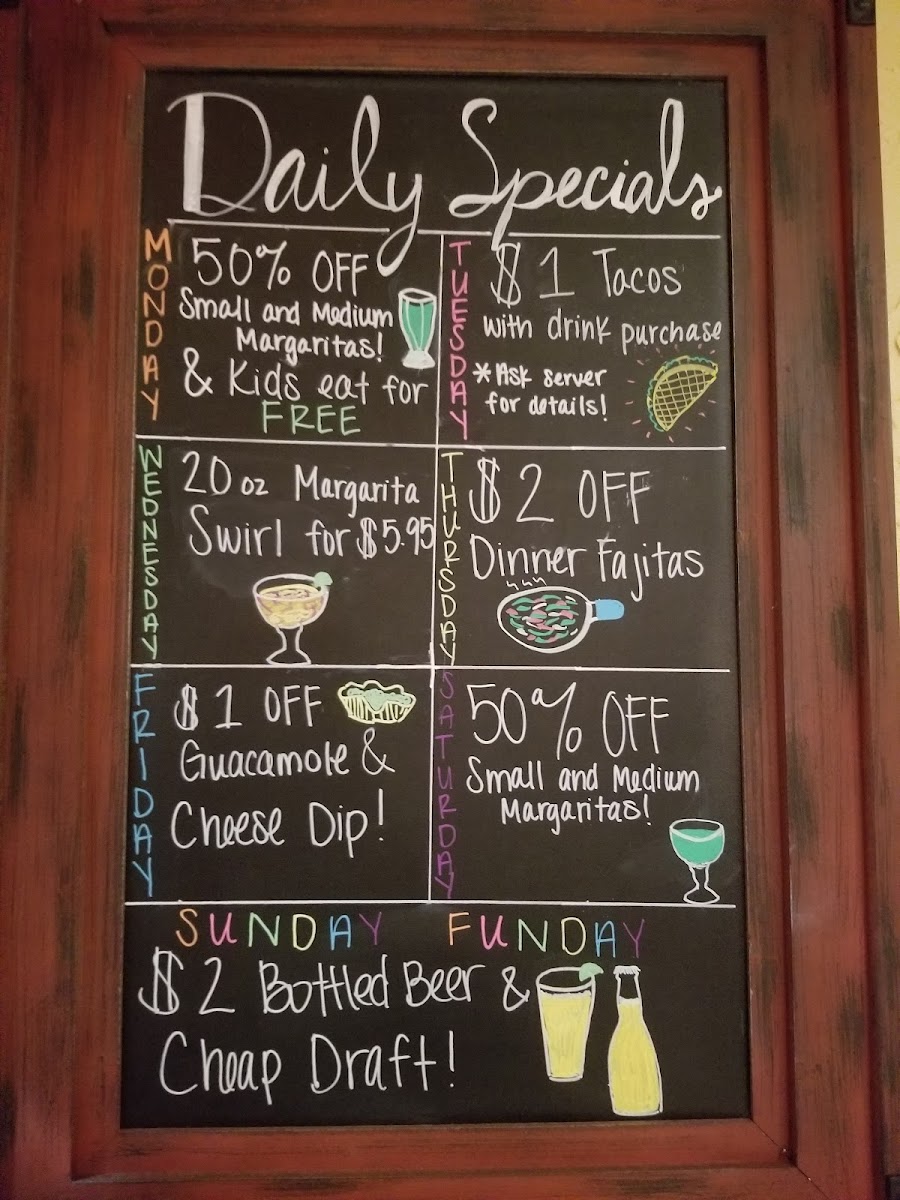 Daily Specials
MONDAY
50% OFF
Small and Medium
Margaritas!
& Kids eat for
FREE
TUESDAY
$1 Tacos
with drink purchase
*Ask server
for details!
WEDNESDAY
20 oz Margarita
Swirl for $5.95
THURSDAY
$2 OFF
Dinner Fajitas
FRIDAY
$1 OFF
Guacamole &
Cheese Dip!
SATURDAY
50% OFF
Small and Medium
Margaritas!
SUNDAY FUNDAY
$2 Bottled Beer &
Cheap Draft!